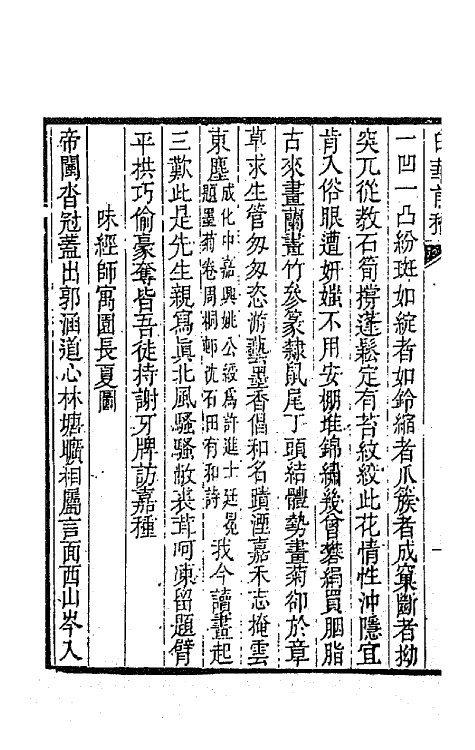 白華前稿
一凹一凸紛斑如綻者如鈴縮者爪簇者成窠斷者拗
突兀從教石筍撐蓬鬆定有苔紋絞此花情性沖隱宜
肯入俗眼遭妍媸不用安棚堆錦繡幾曾礬絹買胭脂
古來畫蘭畫竹參篆隸鼠尾丁頭結體勢畫菊卻於章
草求生管匆匆恣游藝墨香倡和名蹟湮嘉禾志掩雲
東塵成化中嘉興姚公綬為許進士廷冕題墨菊卷周桐邨沈石田有和詩我今讀畫起
三歎此是先生親寫真北風騷騷敝裘茸呵凍留題臂
平拱巧偷豪奪皆吾徒持謝牙牌訪嘉種
味經師寓園長夏圖
帝闉沓冠蓋出郭涵道心林塘曠相屬言面西山岑入